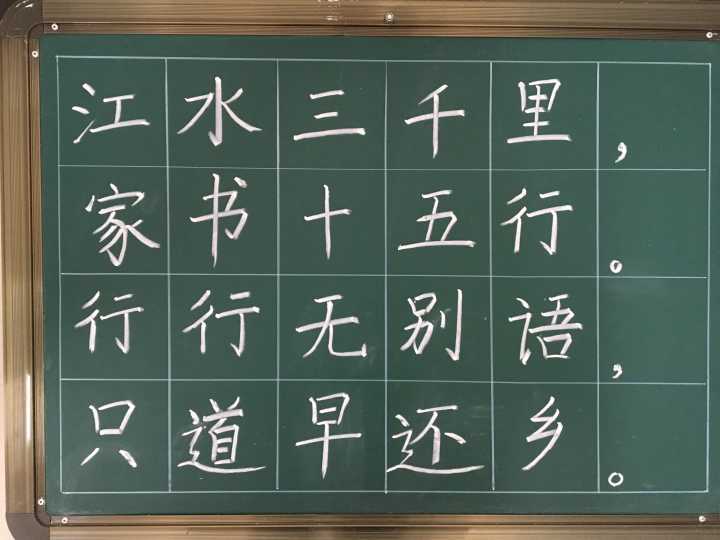 江水三千里,
家书十五行。
行行无别语,
只道早还乡。